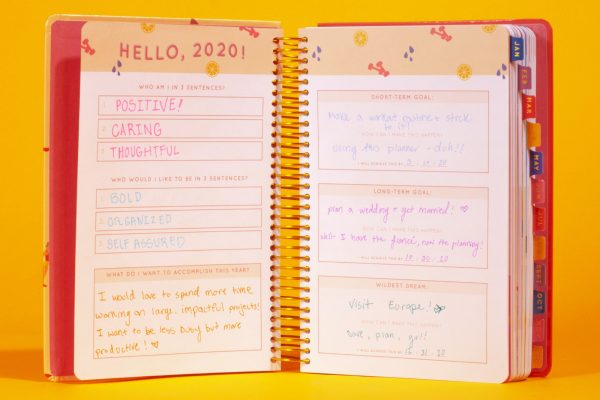 HELLO, 2020!
WHO AM I IN 3 SENTENCES?
1. POSITIVE!
2. CARING
3. THOUGHTFUL
WHO WOULD I LIKE TO BE IN 3 SENTENCES?
1. BOLD
2. ORGANIZED
3. SELF ASSURED
WHAT DO I WANT TO ACCOMPLISH THIS YEAR?
I would love to spend more time
working on large, impactful projects!
I want to be less busy but more
productive!
SHORT-TERM GOAL:
Make a workout routine + stick
to it!
HOW CAN I MAKE THIS HAPPEN?
using this planner - duh!!
I WILL ACHIEVE THIS BY
LONG-TERM GOAL:
plan a wedding + get married!
HOW CAN I MAKE THIS HAPPEN?
well I have the fiancé, now the planning!
I WILL ACHIEVE THIS BY
WILDEST DREAM:
Visit Europe!
HOW CAN I MAKE THIS HAPPEN?
save, plan, go!!
I WILL ACHIEVE THIS BY
JAN
FEB
MAR
MAY
SEPT
OCT